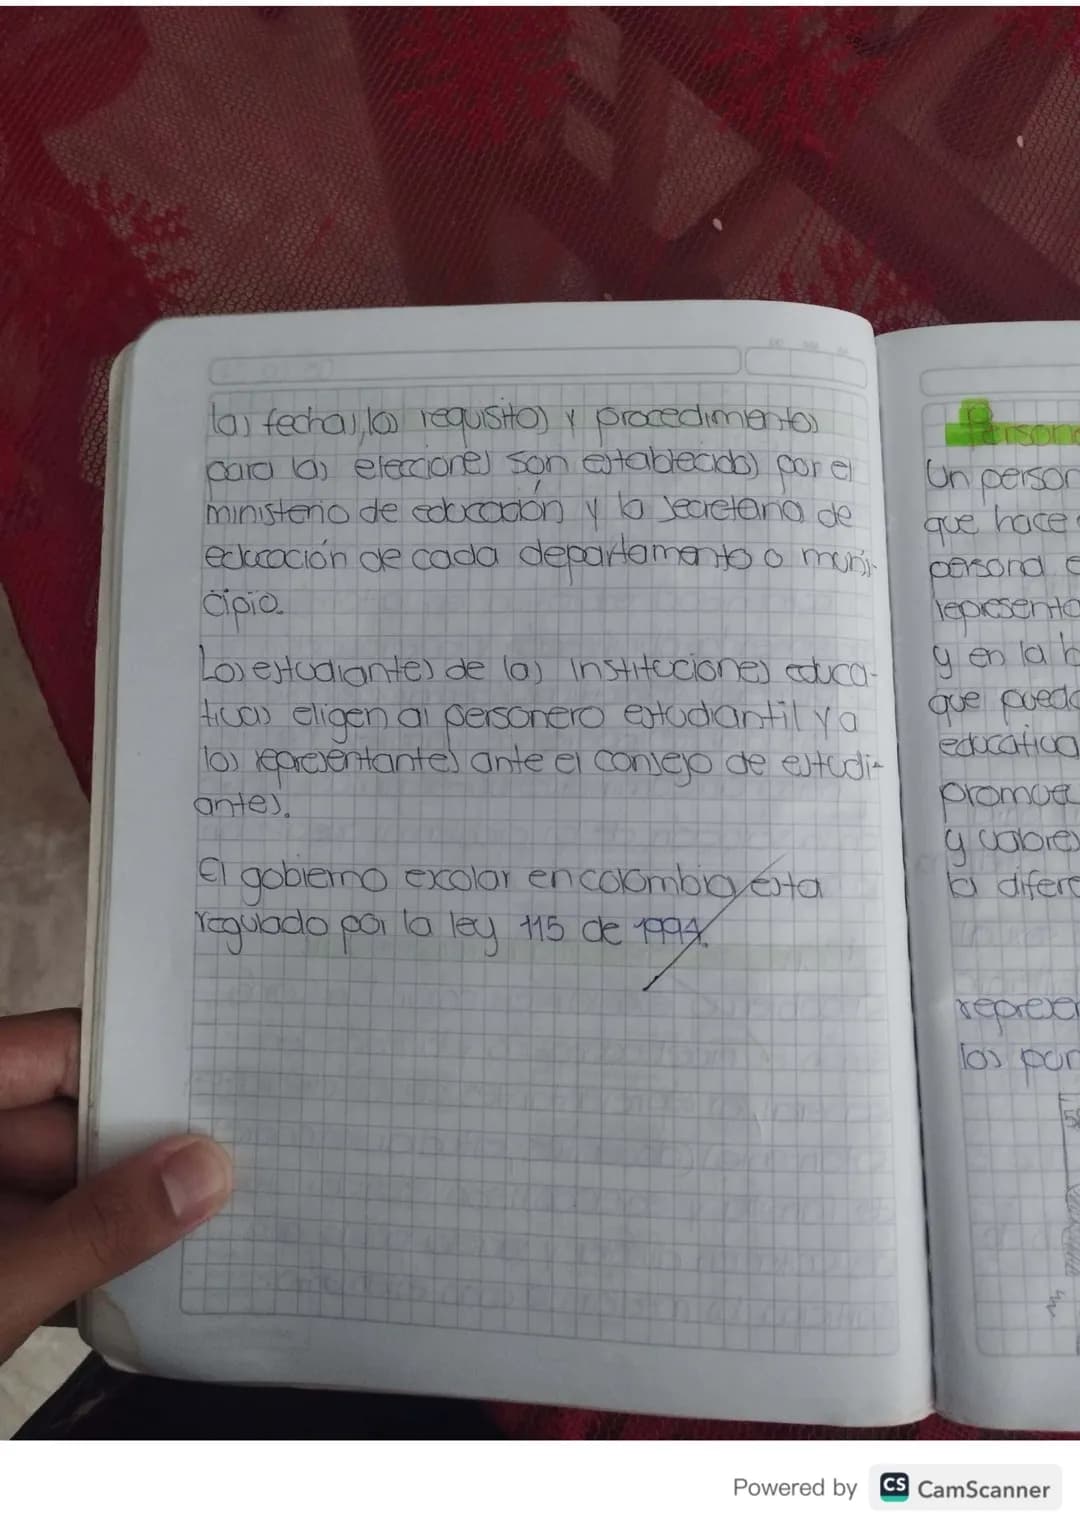 las fechas, los requisitos y procedimientos
para las elecciones son establecidos por el
ministerio de educación y la secretaria de
educación de cada departamento o muni-
cipio.
Los estudiantes de las instituciones educa-
tivas eligen al personero estudiantil y a
los representantes ante el consejo de estudi-
antes.
El gobierno excolar en colombia esta
regulado por la ley 115 de 1994.
Person
Un person
que hace
personal e
representa
y en la b
que pueda
educativa
promue
y valores
la difere
represen
los par
Powered by CS CamScanner